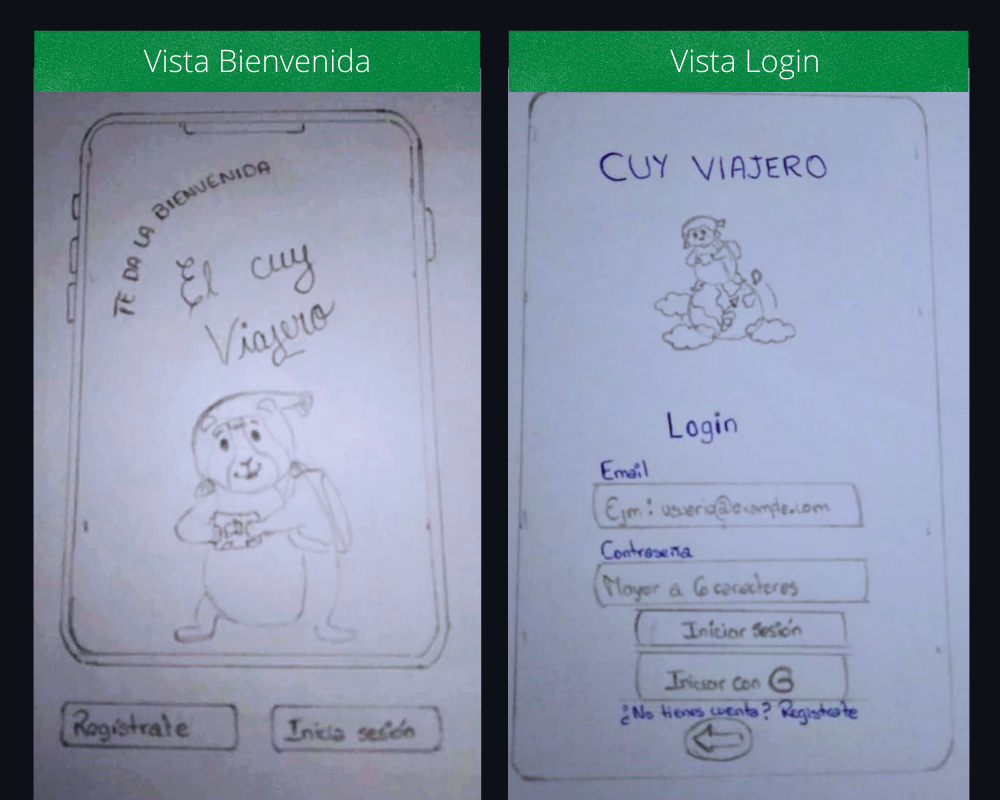 Vista Bienvenida
TE DA LA BIENVENIDA
El cuy
Viajero
Regístrate
Inicia sesión
Vista Login
CUY VIAJERO
Login
Email
Ejm: usuario@example.com
Contraseña
Mayor a 6 caracteres
Iniciar sesión
Iniciar con G
¿No tienes cuenta? Registrate